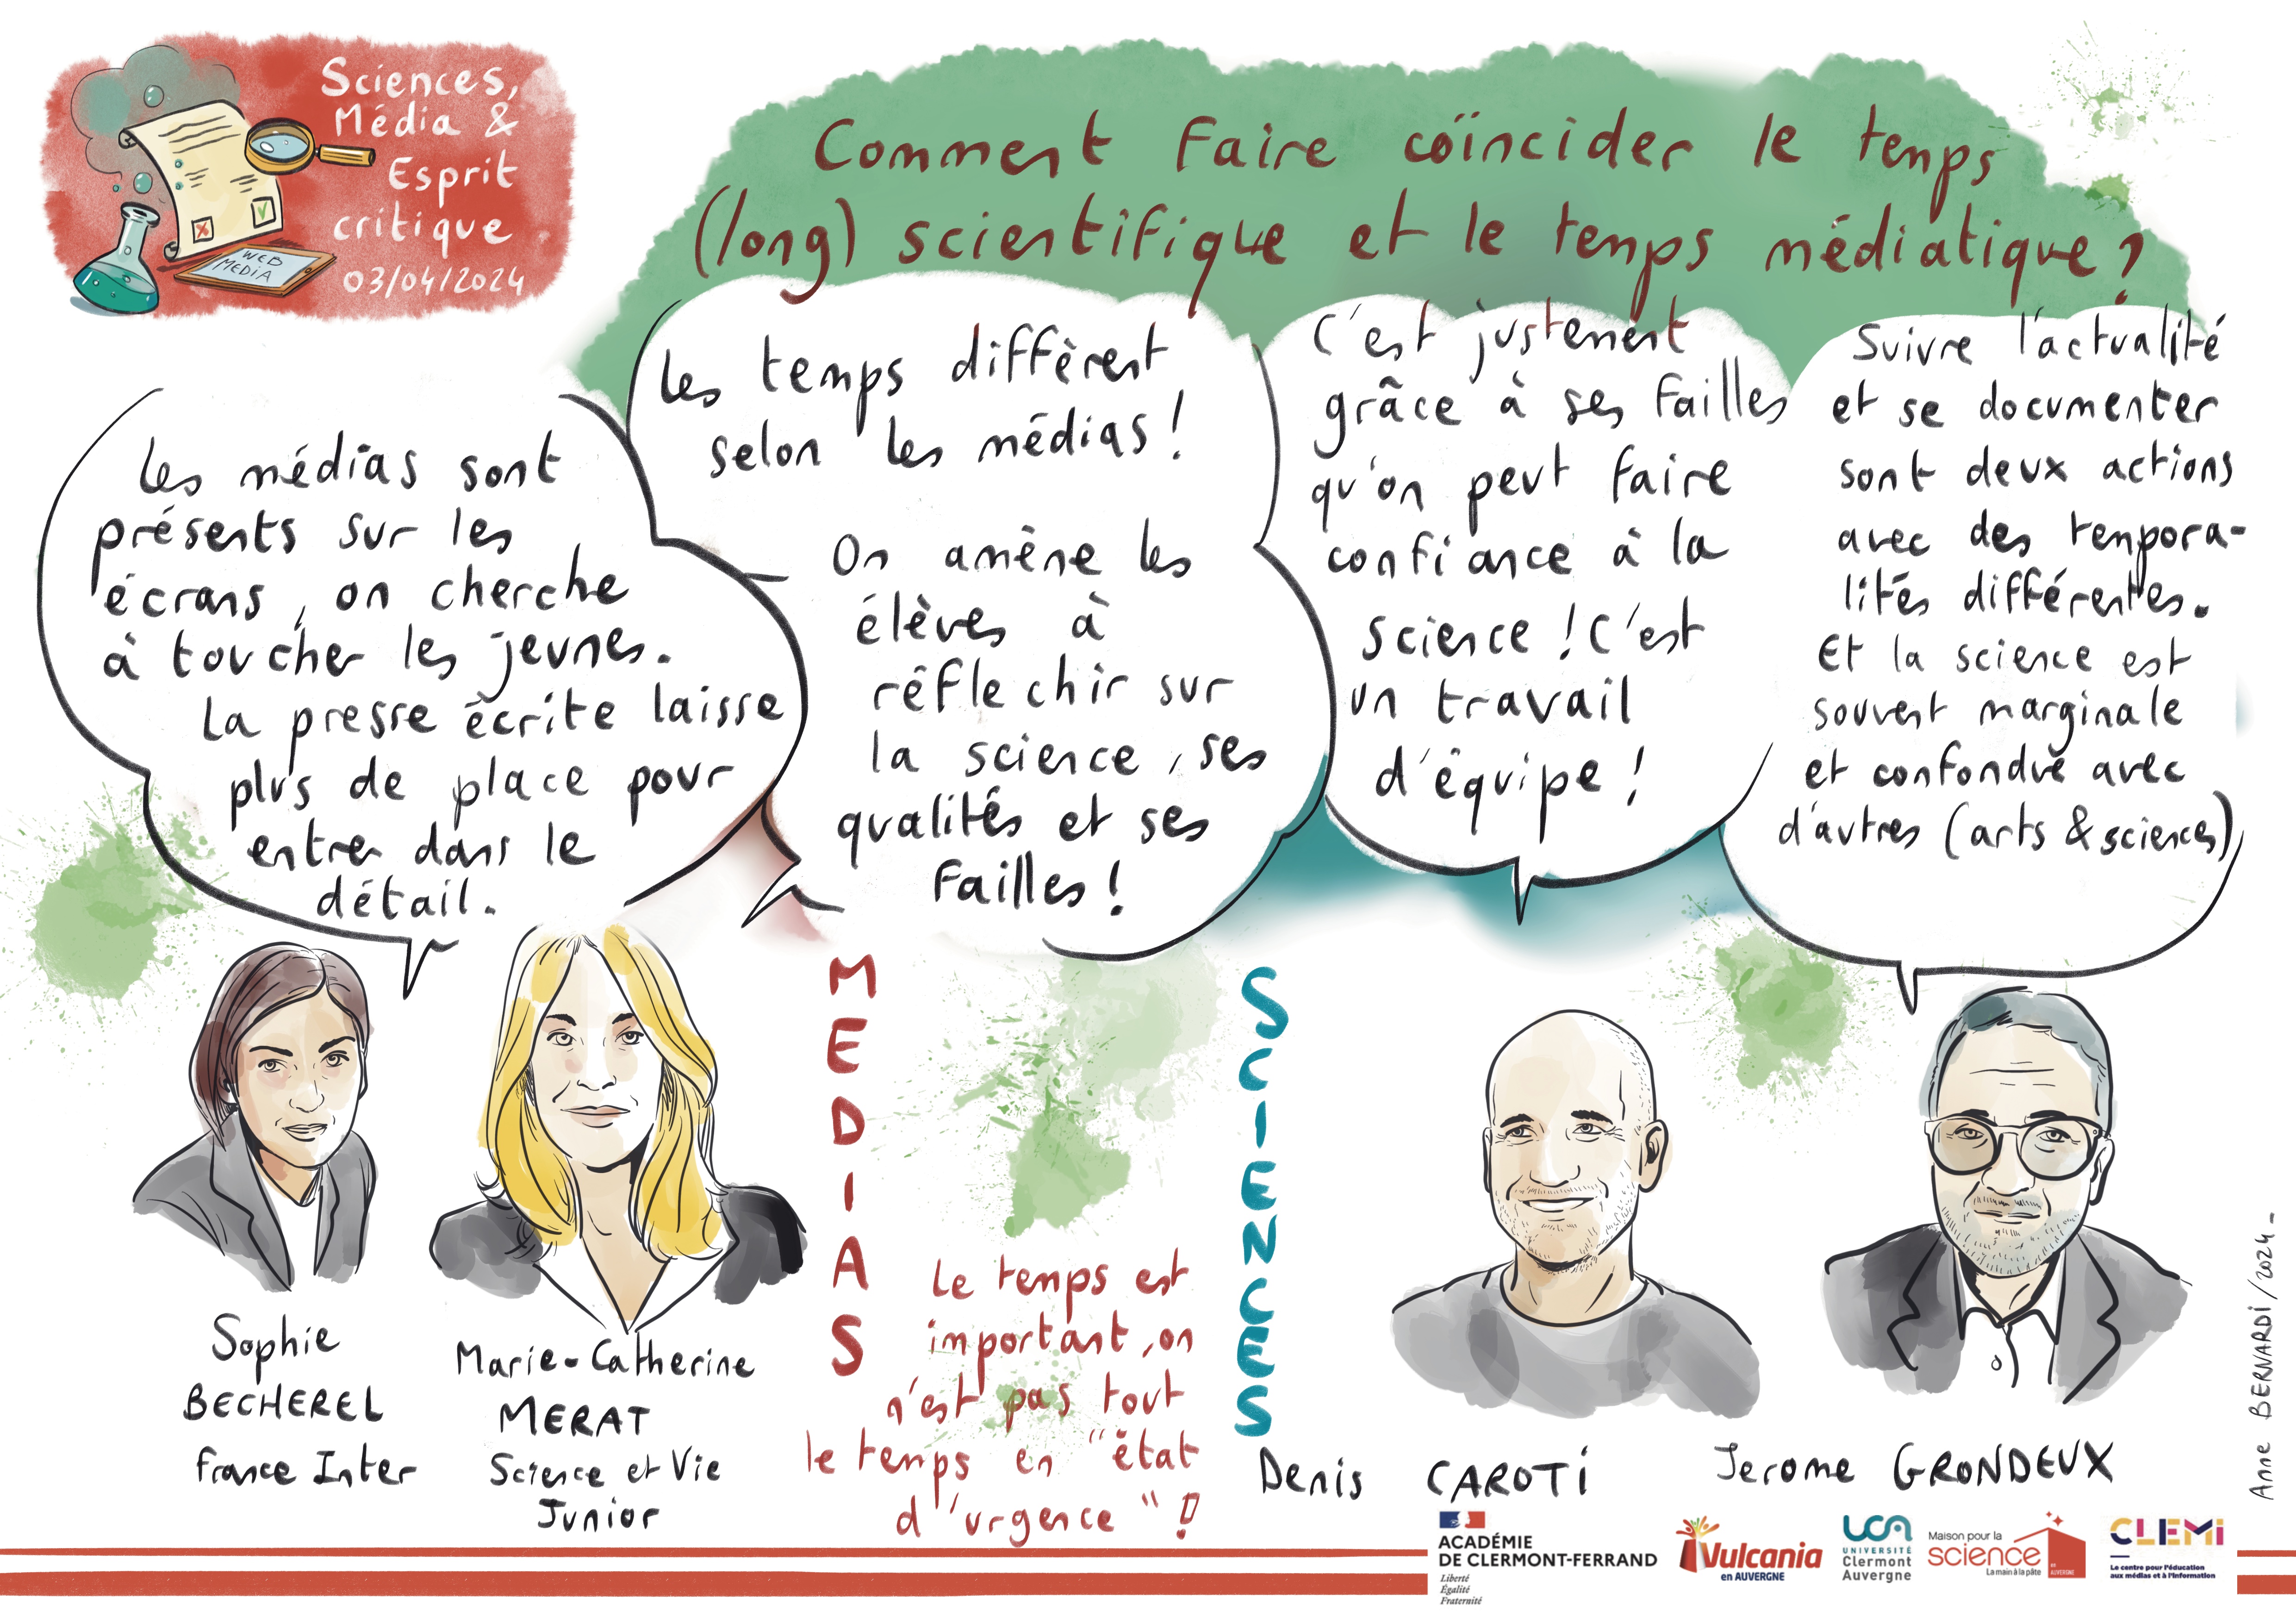 Sciences,
Média &
Esprit
critique
03/04/2024
WEB
MEDIA
Comment faire coïncider le temps
(long) scientifique et le temps médiatique ?
Les médias sont
présents sur les
écrans, on cherche
à toucher les jeunes.
La presse écrite laisse
plus de place pour
entrer dans le
détail.
Les temps diffèrent
selon les médias !
On amène les
élèves à
réfléchir sur
la science, ses
qualités et ses
failles !
C'est justement
grâce à ses failles
qu'on peut faire
confiance à la
science ! C'est
un travail
d'équipe !
Suivre l'actualité
et se documenter
sont deux actions
avec des tempora-
lités différentes.
Et la science est
souvent marginale
et confondue avec
d'autres (arts & sciences)
MEDIAS
SCIENCES
Le temps est
important, on
n'est pas tout
le temps en "état
d'urgence" !
Sophie
BECHEREL
France Inter
Marie-Catherine
MERAT
Science et Vie
Junior
Denis CAROTI
Jerome GRONDEUX
Anne BERNARDI/2024-
ACADÉMIE
DE CLERMONT-FERRAND
Liberté
Égalité
Fraternité
Vulcania
en AUVERGNE
UCA
UNIVERSITÉ
Clermont
Auvergne
Maison pour la
science
La main à la pâte
en
AUVERGNE
CLEMI
Le centre pour l'éducation
aux médias et à l'information